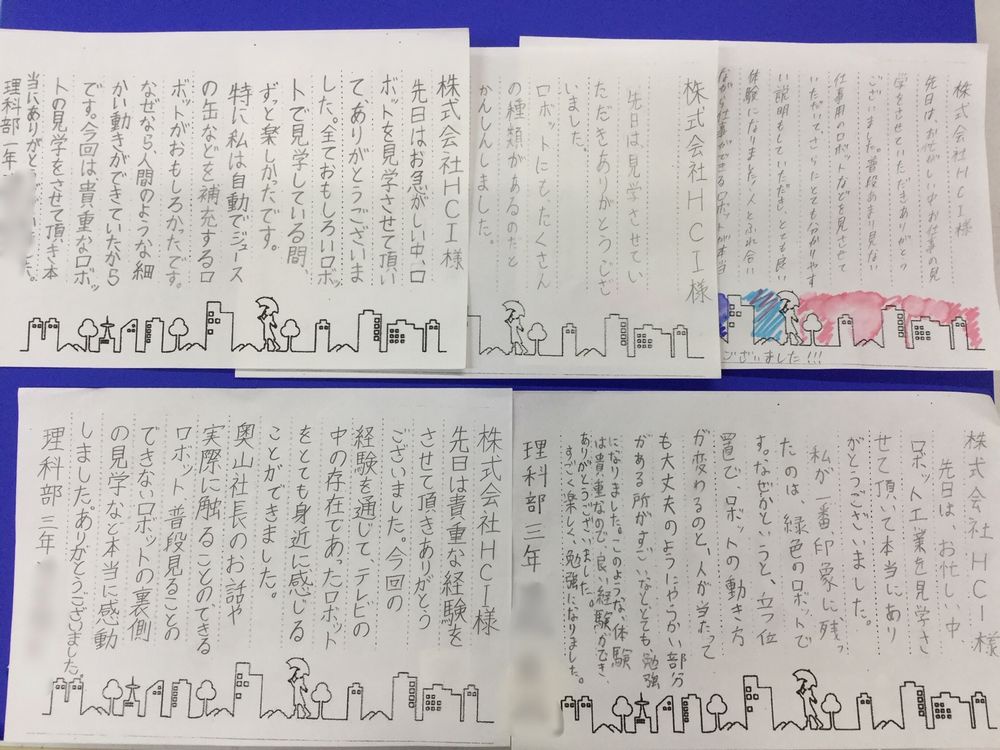 株式会社HCI様
先日はお急がしい中、ロ
ボットを見学させて頂い
て、ありがとうございま
した。全ておもしろいロボッ
トで見学している間、
ずっと楽しかったです。
特に私は自動でジュース
の缶などを補充するロ
ボットがおもしろかったです。
なぜなら、人間のような細
かい動きができていたから
です。今回は、貴重なロボッ
トの見学をさせて頂き本
当にありがとう
理科部一年
株式会社HCI様
先日は見学させてい
ただきありがとうござ
いました。
ロボットにもたくさん
の種類があるのだと
かんしんしました。
株式会社HCI様
先日は、お忙しい中お仕事の見
学をさせていただきありがとう
ございました。普段あまり見ない
仕事用のロボットなどを見させて
いただいて、さらにとても分かりやす
い説明もしていただき、とても良い
体験になりました。人とふれ合い
ながら仕事ができるロボットが本当
ございました!!!
株式会社HCI様
先日は貴重な経験を
させて頂きありがとう
ございました。今回の
経験を通じて、テレビの
中の存在であったロボット
をとても身近に感じる
ことができました。
奥山社長のお話や
実際に触ることのできる
ロボット、普段見ることの
できないロボットの裏側
の見学など本当に感動
しました。ありがとうございました。
理科部三年
株式会社HCI様
先日は、お忙しい中
ロボット工業を見学さ
せて頂いて本当にあり
がとうございました。
私が一番印象に残っ
たのは緑色のロボットで
す。なぜかというと、立つ位
置で、ロボットの動き方
が変わるのと、人が当たって
も大丈夫のようにやわかい部分
がある所がすごいなとても、勉強
になりました。このような、体験
は貴重なので良い経験ができ、
ありがとうございました。
すごく楽しく、勉強になりました。
理科部三年